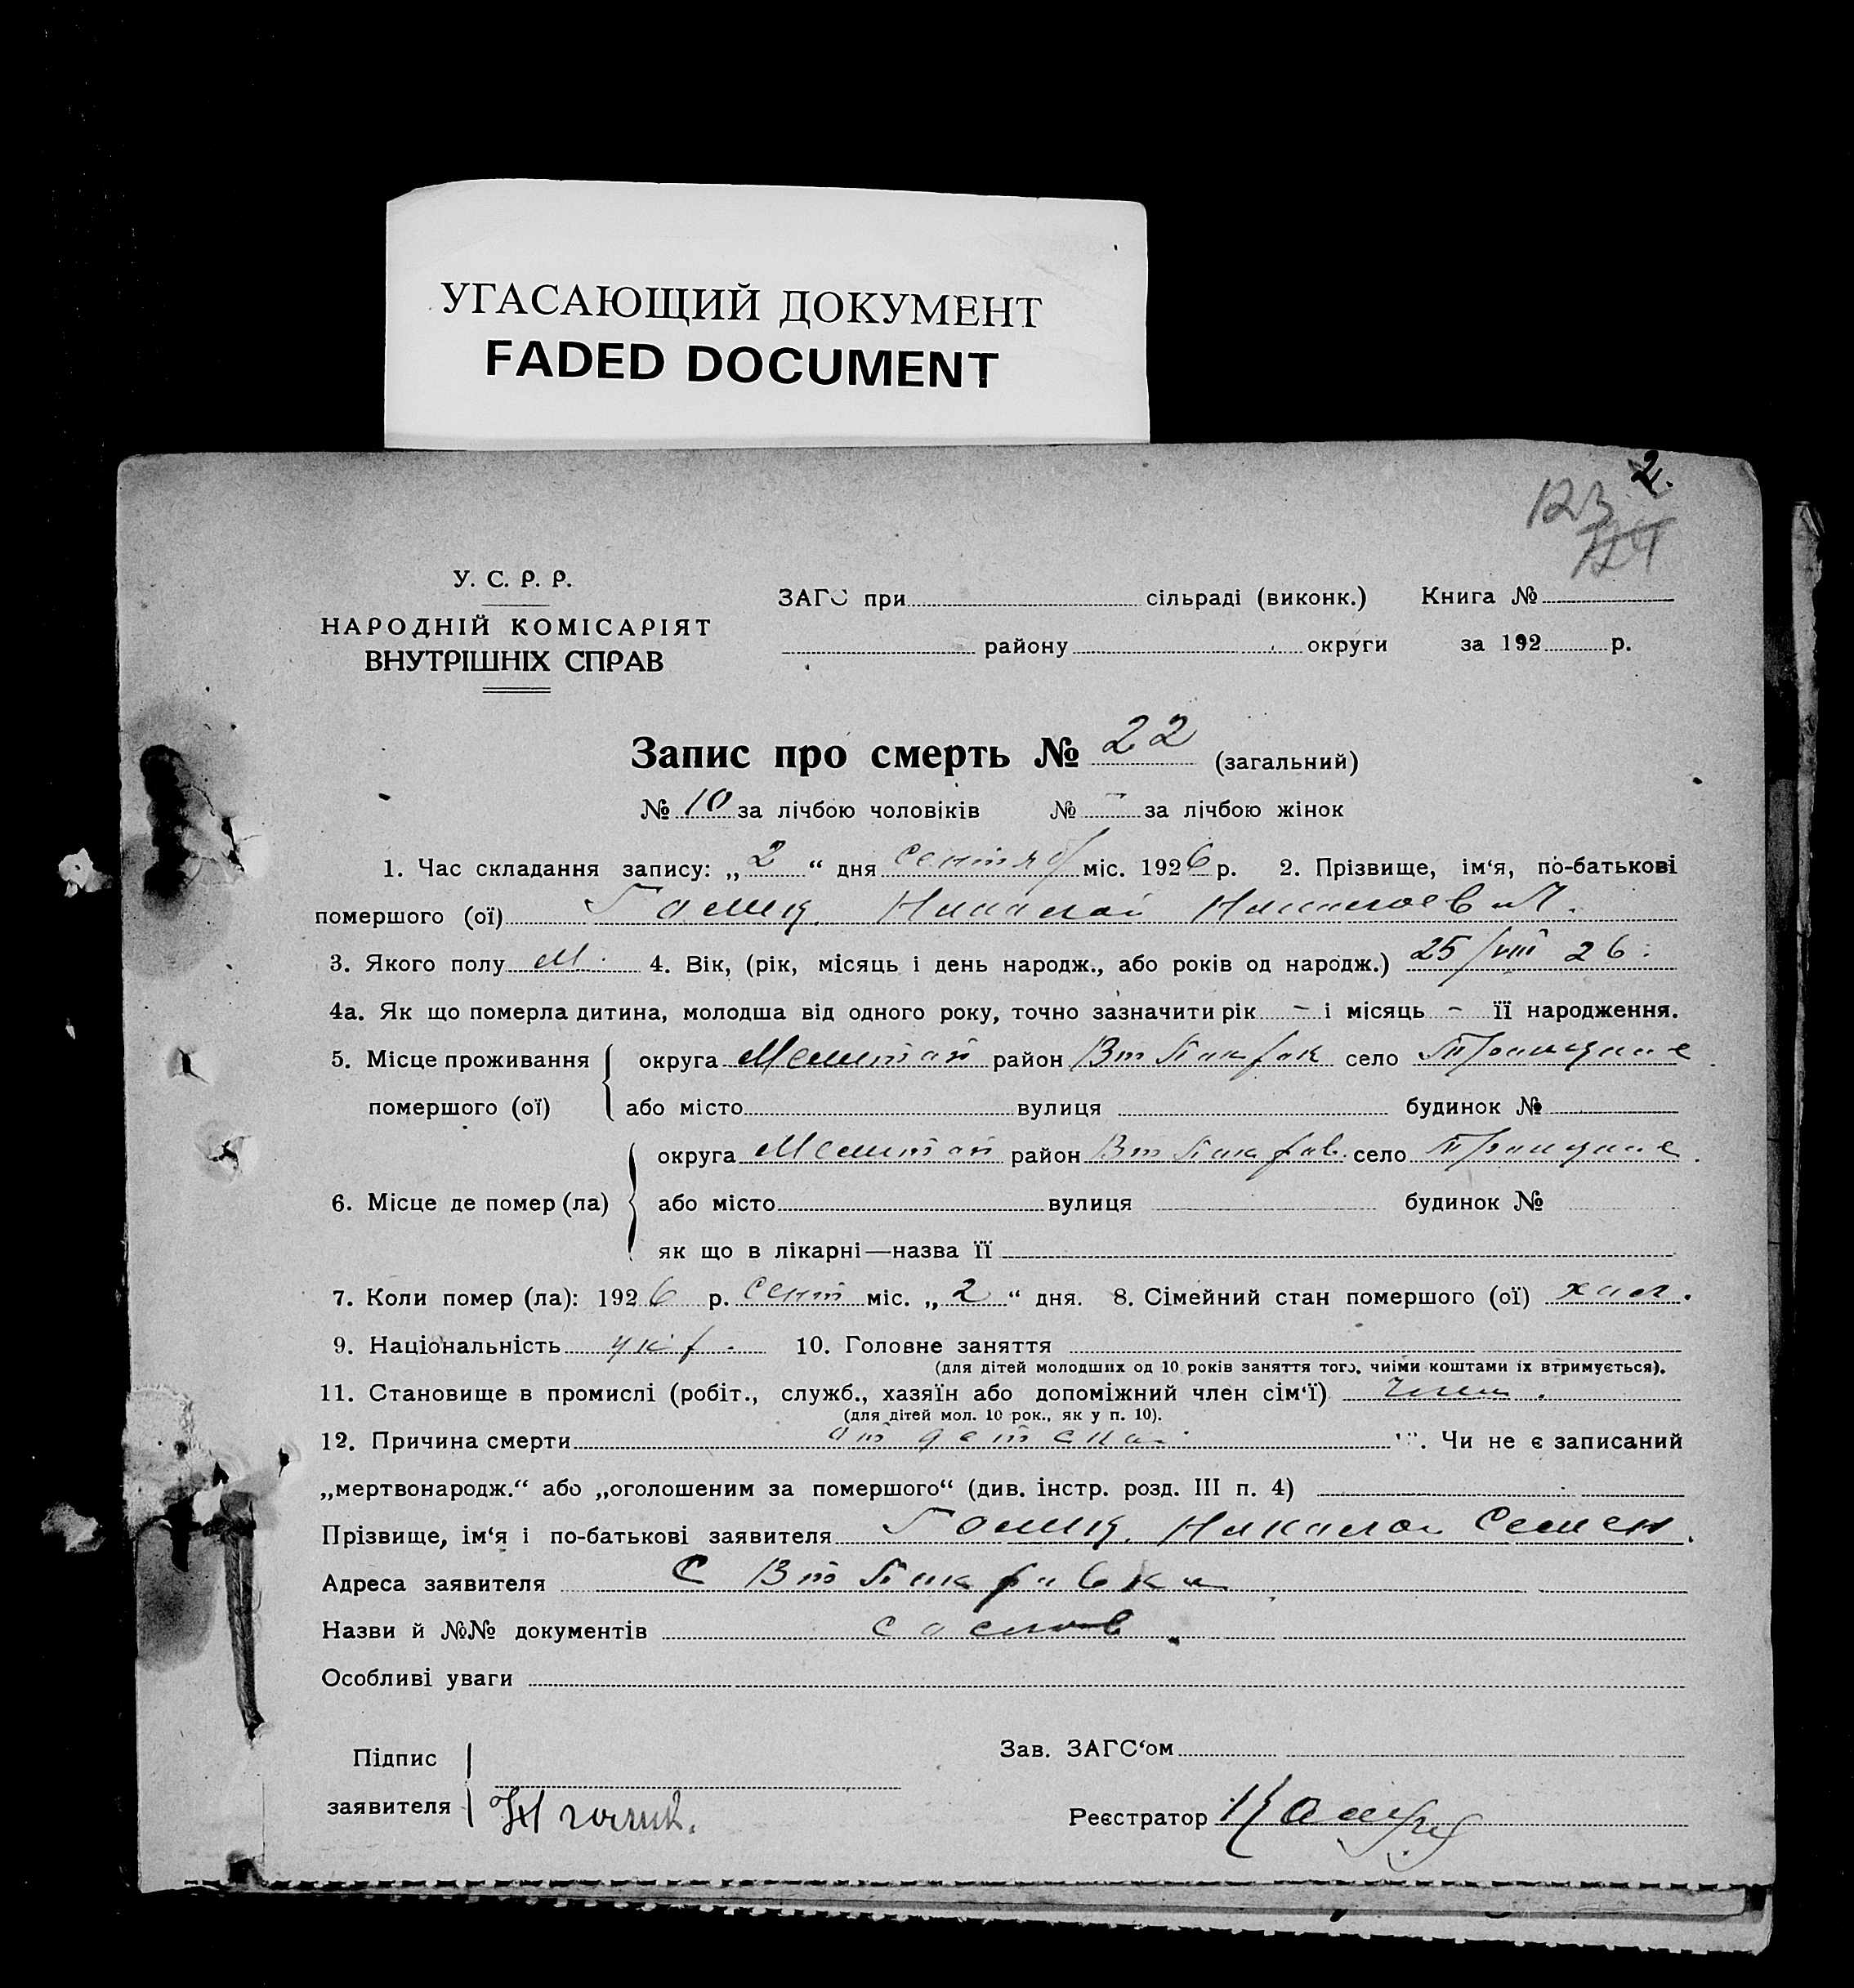 УГАСАЮЩИЙ ДОКУМЕНТ
FADED DOCUMENT
2.
123
У. С. Р. Р.
НАРОДНІЙ КОМІСАРІЯТ
ВНУТРІШНІХ СПРАВ
ЗАГС при сільраді (виконк.) Книга №
району округи за 192 р.
Запис про смерть № 22 (загальний)
№ 10 за лічбою чоловіків № - за лічбою жінок
1. Час складання запису: „ 2 “ дня сентяб міс. 1926 р. 2. Прізвище, ім‘я, по-батькові
помершого (ої) Николай
3. Якого полу М. 4. Вік, (рік, місяць і день народж., або років од народж.) 25/VIII 26.
4а. Як що померла дитина, молодша від одного року, точно зазначити рік - і місяць - її народження.
5. Місце проживання округа Мелитоп район село
помершого (ої) або місто вулиця будинок №
округа Мелитоп район село
6. Місце де помер (ла) або місто вулиця будинок №
як що в лікарні—назва її
7. Коли помер (ла): 1926 р. сент міс. „ 2 “ дня. 8. Сімейний стан помершого (ої) хол.
9. Національність укр. 10. Головне заняття
(для дітей молодших од 10 років заняття того, чиїми коштами їх втримується).
11. Становище в промислі (робіт., служб., хазяїн або допоміжний член сім‘ї) член.
(для дітей мол. 10 рок., як у п. 10).
12. Причина смерти от . Чи не є записаний
„мертвонародж.“ або „оголошеним за помершого“ (див. інстр. розд. III п. 4)
Прізвище, ім‘я і по-батькові заявителя Николай Семен.
Адреса заявителя с
Назви й №№ документів
Особливі уваги
Підпис
заявителя
Зав. ЗАГС‘ом
Реєстратор